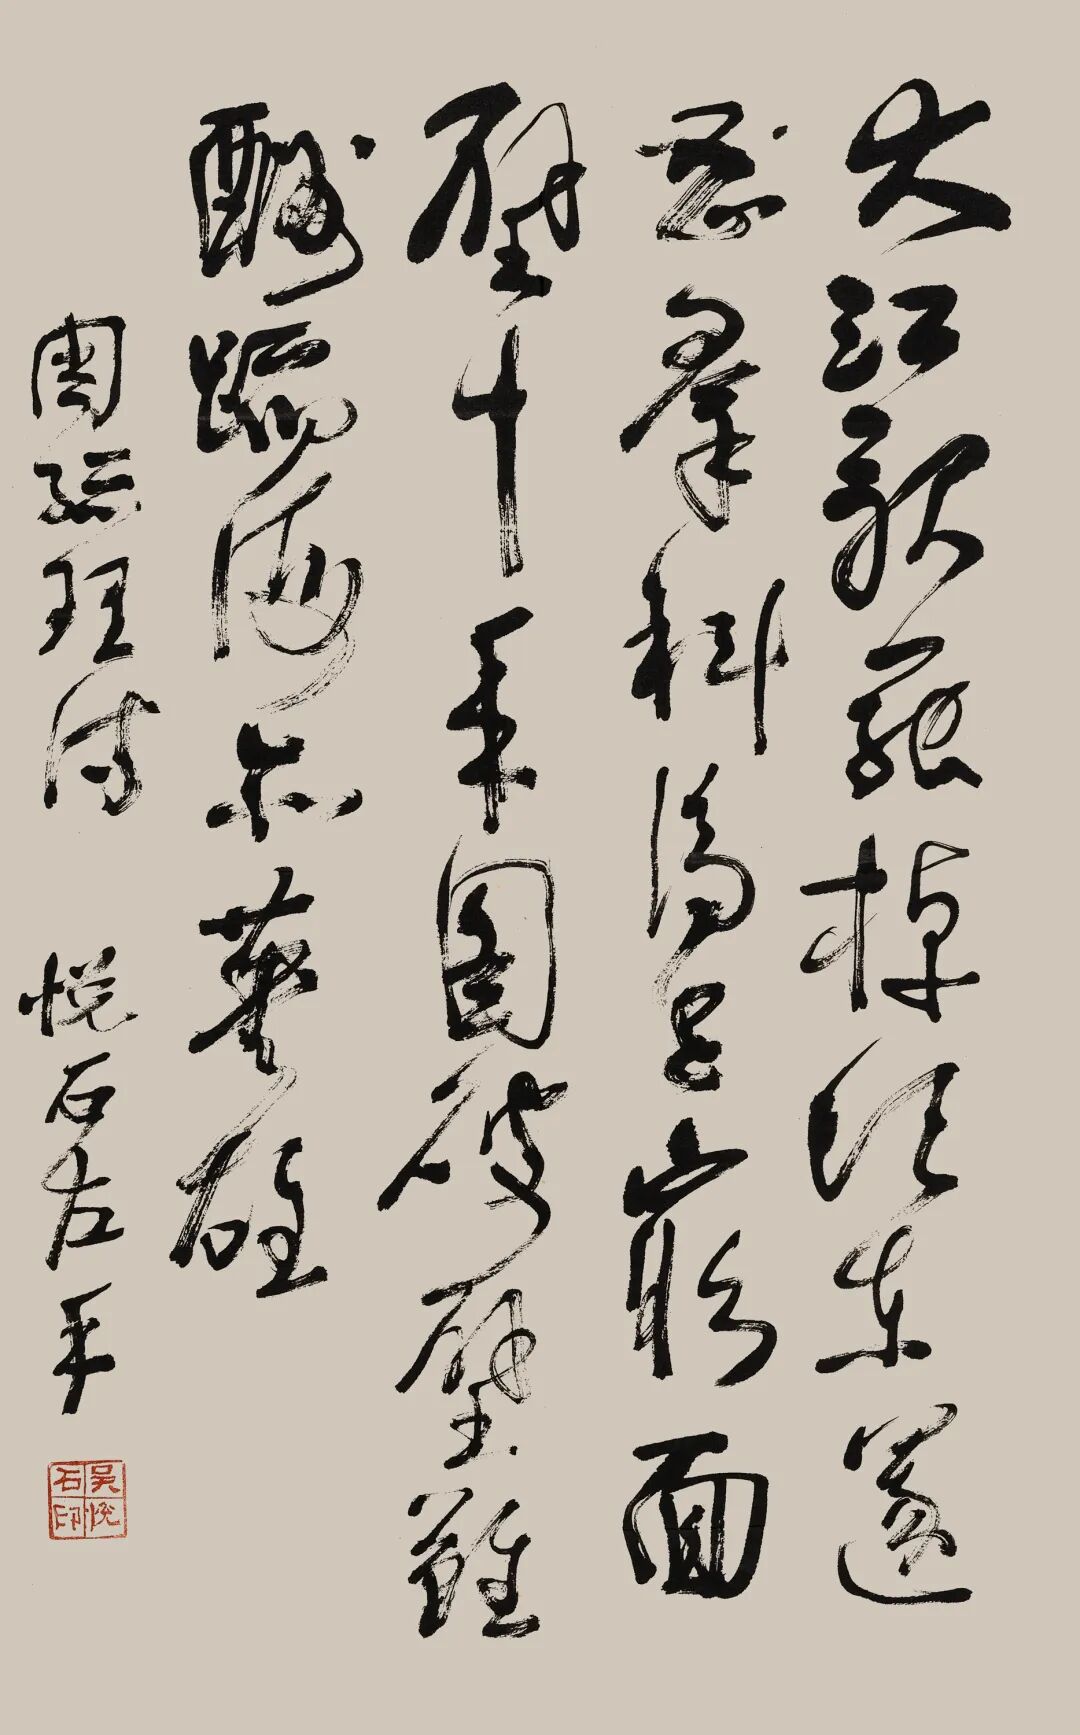 大江歌罷棹頭東邃
密羣科濟世窮面
壁十年圖破壁難
酬蹈海亦英雄
周總理詩 悅石左手
吳悅石印